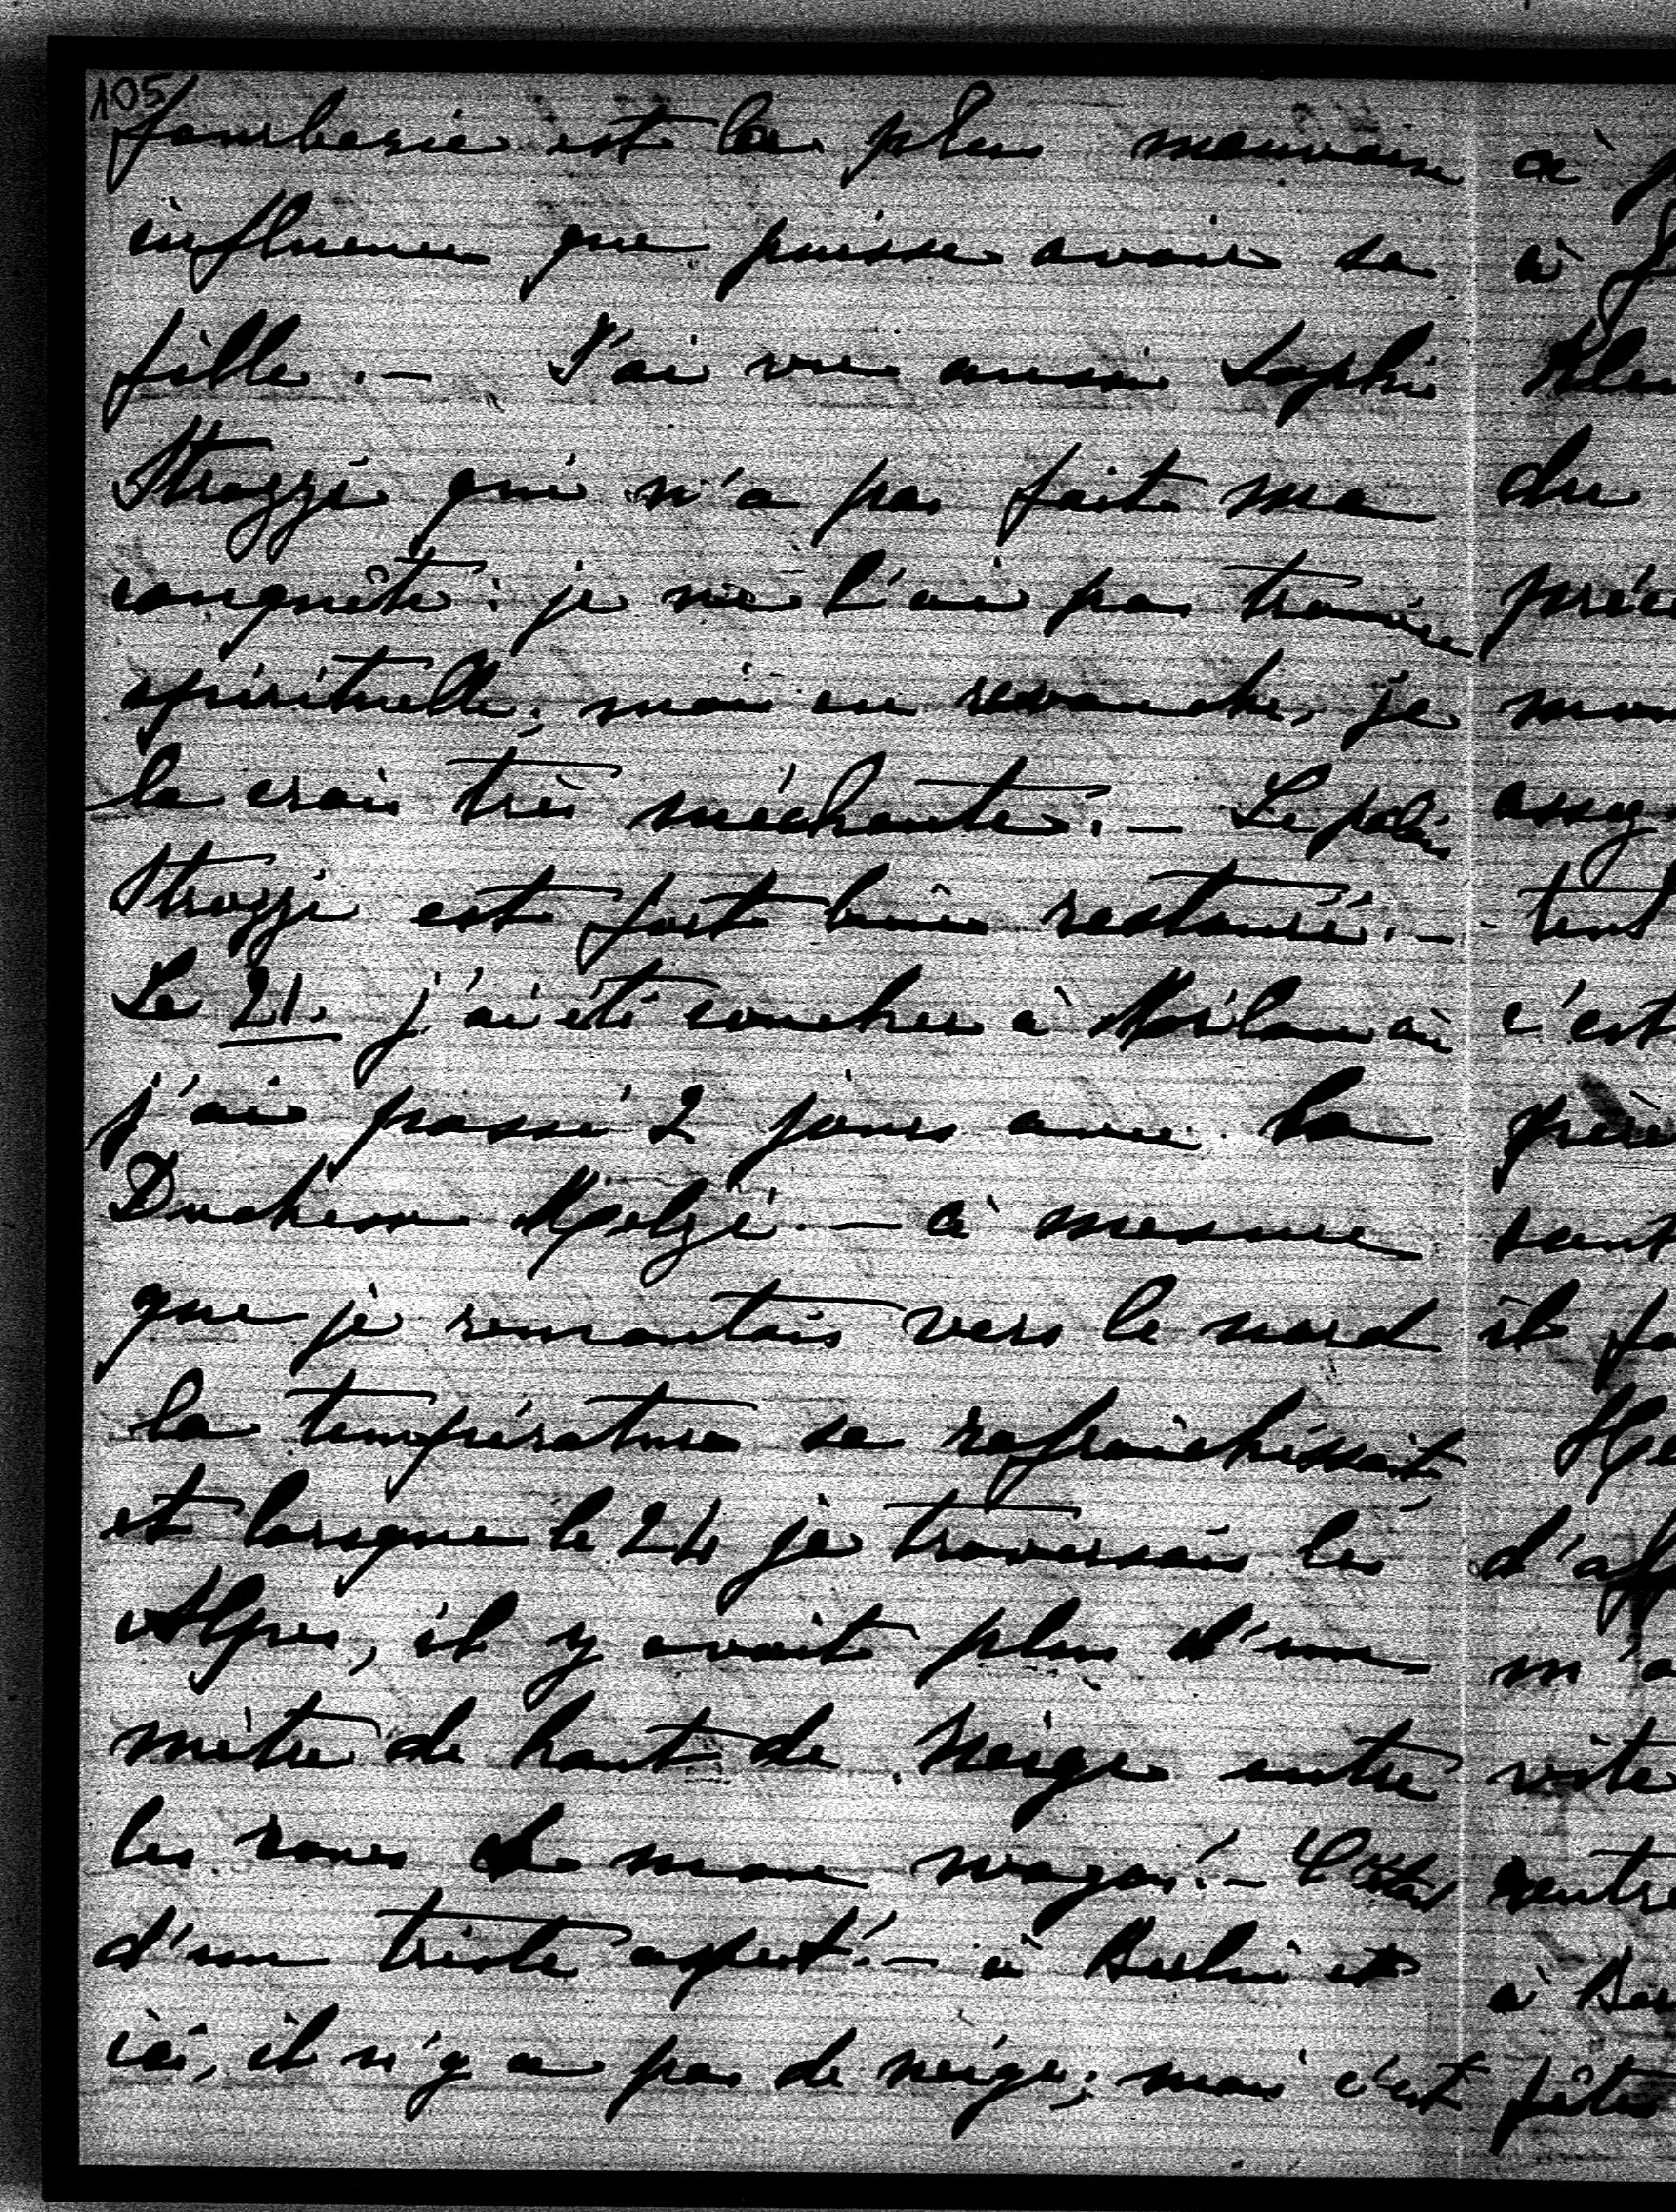 105
fourberie est la plus mauvaise
influence que puisse avoir sa
fille.— J'ai vu aussi Sophie
Strozzi qui n'a pas fait ma
conquête: je ne l'ai pas trouvée
spirituelle; mais en revanche, je
la crois très méchante.— Le palais
Strozzi est fort bien restauré.—
Le 21. j'ai été coucher à Milan où
j'ai passé 2 jours avec la
Duchesse Melzi.— à mesure
que je remontais vers le nord
la température se rafraichissait
et lorsque le 24 je traversais les
Alpes, il y avait plus d'un
mètre de haut de neige entre
les roues de mon wagon!— C'était
d'un triste aspect!— à Berlin et
ici, il n'y a pas de neige; mais c'est
à
à
du
c'est
il
m'a
vite
à